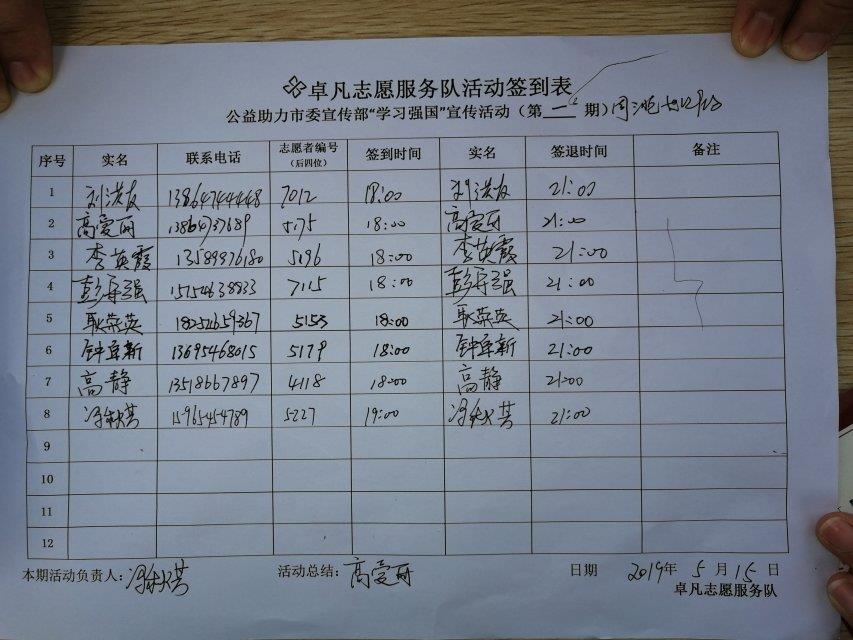 卓凡志愿服务队活动签到表
公益助力市委宣传部“学习强国”宣传活动（第一期）
序号 实名 联系电话 志愿者编号（后四位） 签到时间 实名 签退时间 备注
1 刘洪友 13864744448 7012 18:00 刘洪友 21:00
2 高爱丽 13864737689 5175 18:00 高爱丽 21:00
3 李英霞 13589976180 5196 18:00 李英霞 21:00
4 彭 强 15754638933 7115 18:00 彭 强 21:00
5 耿荣英 18252659367 5153 18:00 耿荣英 21:00
6 钟阜新 13695468015 5179 18:00 钟阜新 21:00
7 高静 13518667897 4118 18:00 高静 21:00
8 冯秋芸 15965454789 5227 19:00 冯秋芸 21:00
9
10
11
12
本期活动负责人：冯秋芸 活动总结：高爱丽 日期 2019年5月15日
卓凡志愿服务队